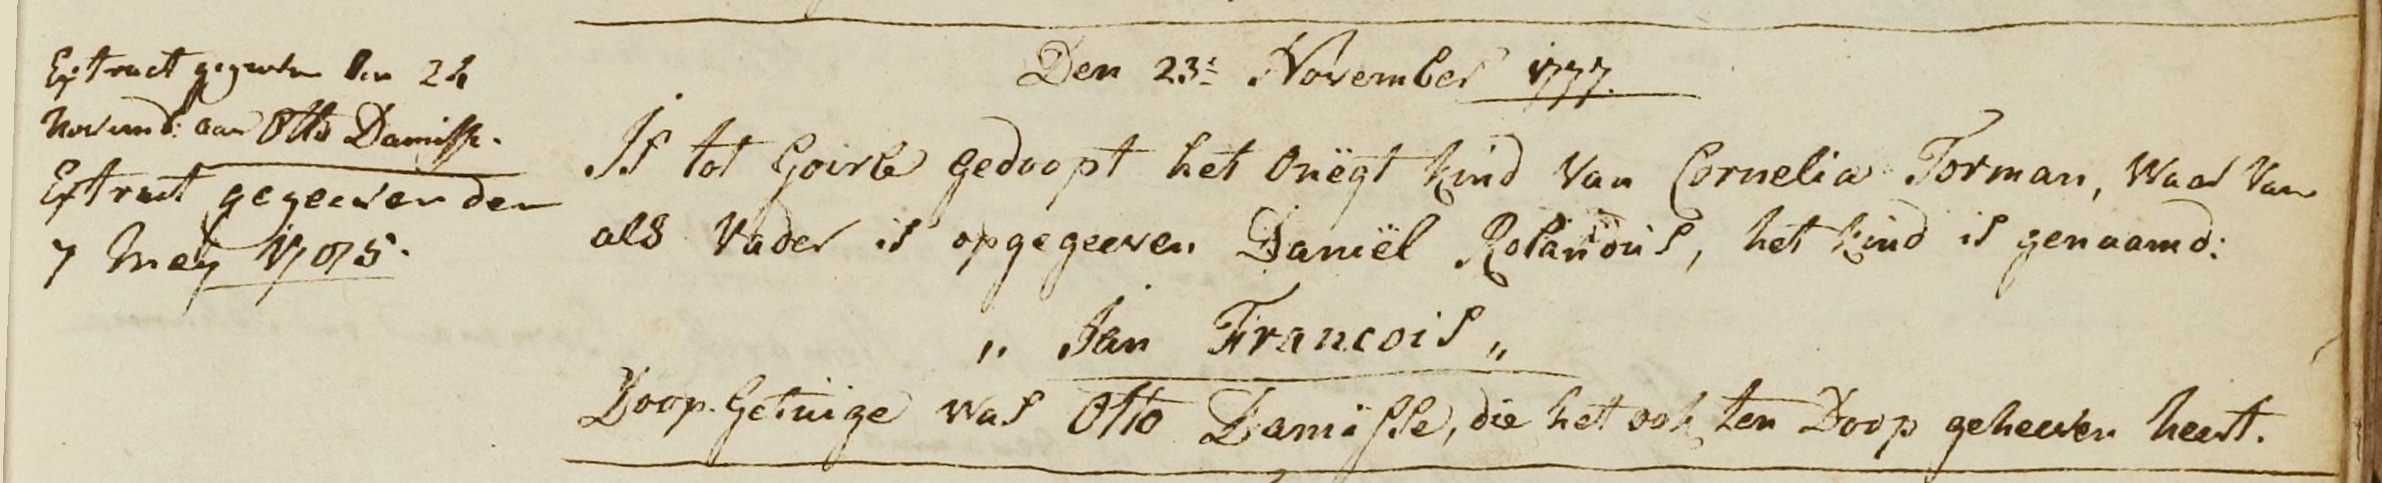 Extract gegeven den 24
Novemb: aan Otto Damisse.
Extract gegeeven den
7 Meÿ 1785.
Den 23ᵉ November 1777.
Is tot Goirle gedoopt het onëgt kind van Cornelia Torman, waar van
als vader is opgegeeven Daniël Rolandus, het kind is genaamd:
„ Jan Francois „
Doop-Getuige was Otto Damisse, die het ook ten Doop geheeven heeft.